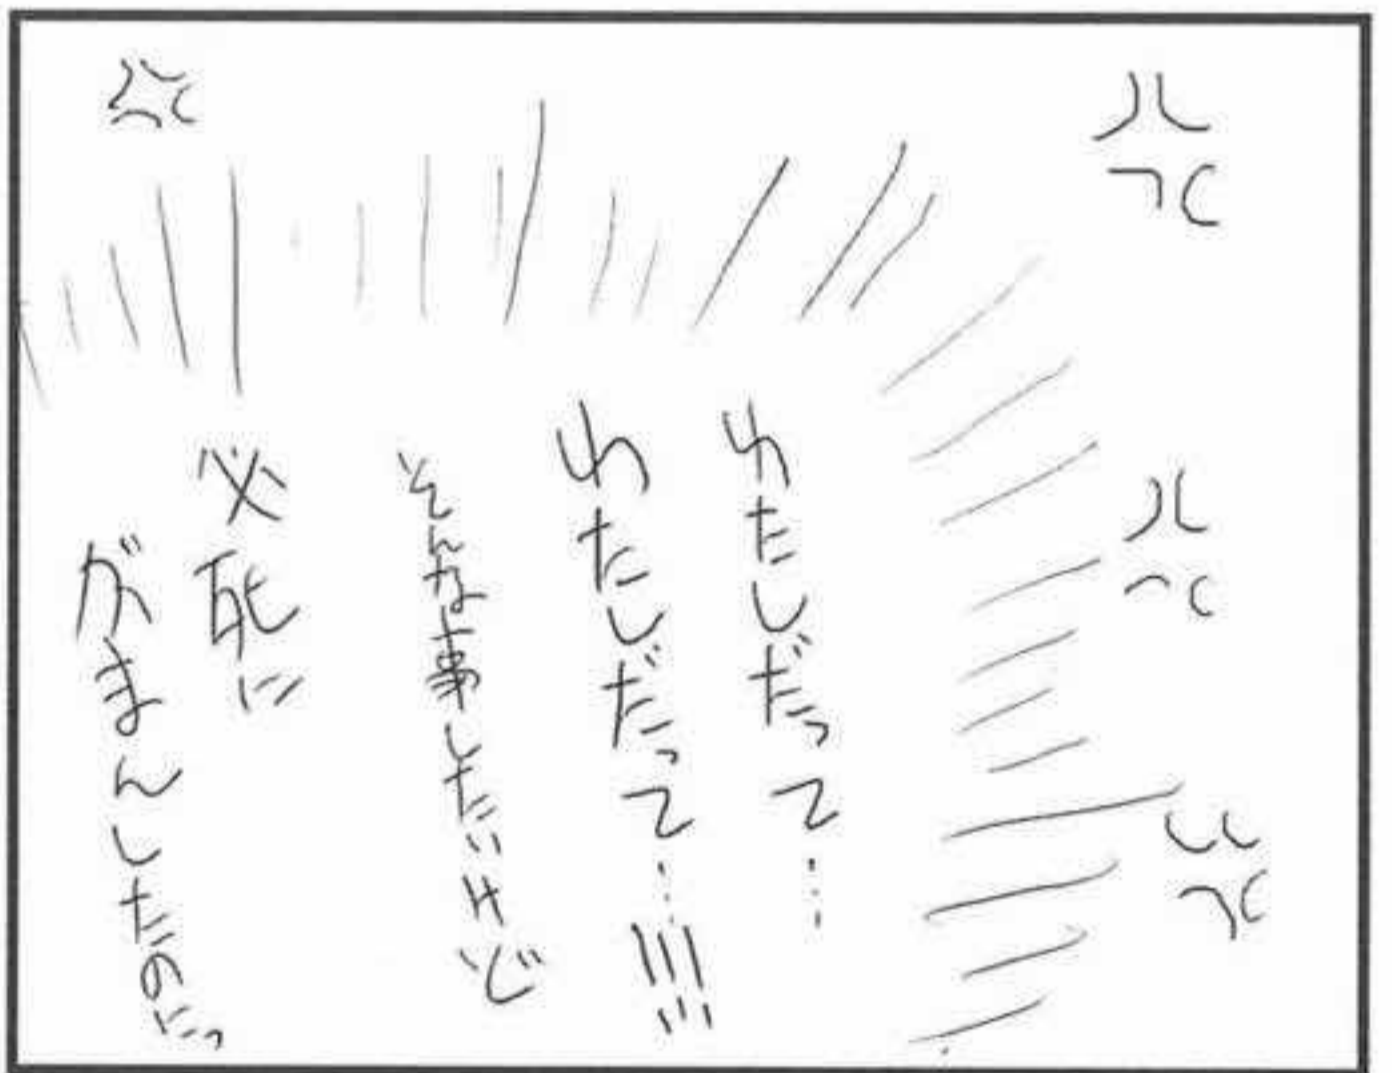 わたしだって…
わたしだって…!!!
そんな事したいけど
必死に
がまんしたのにっ